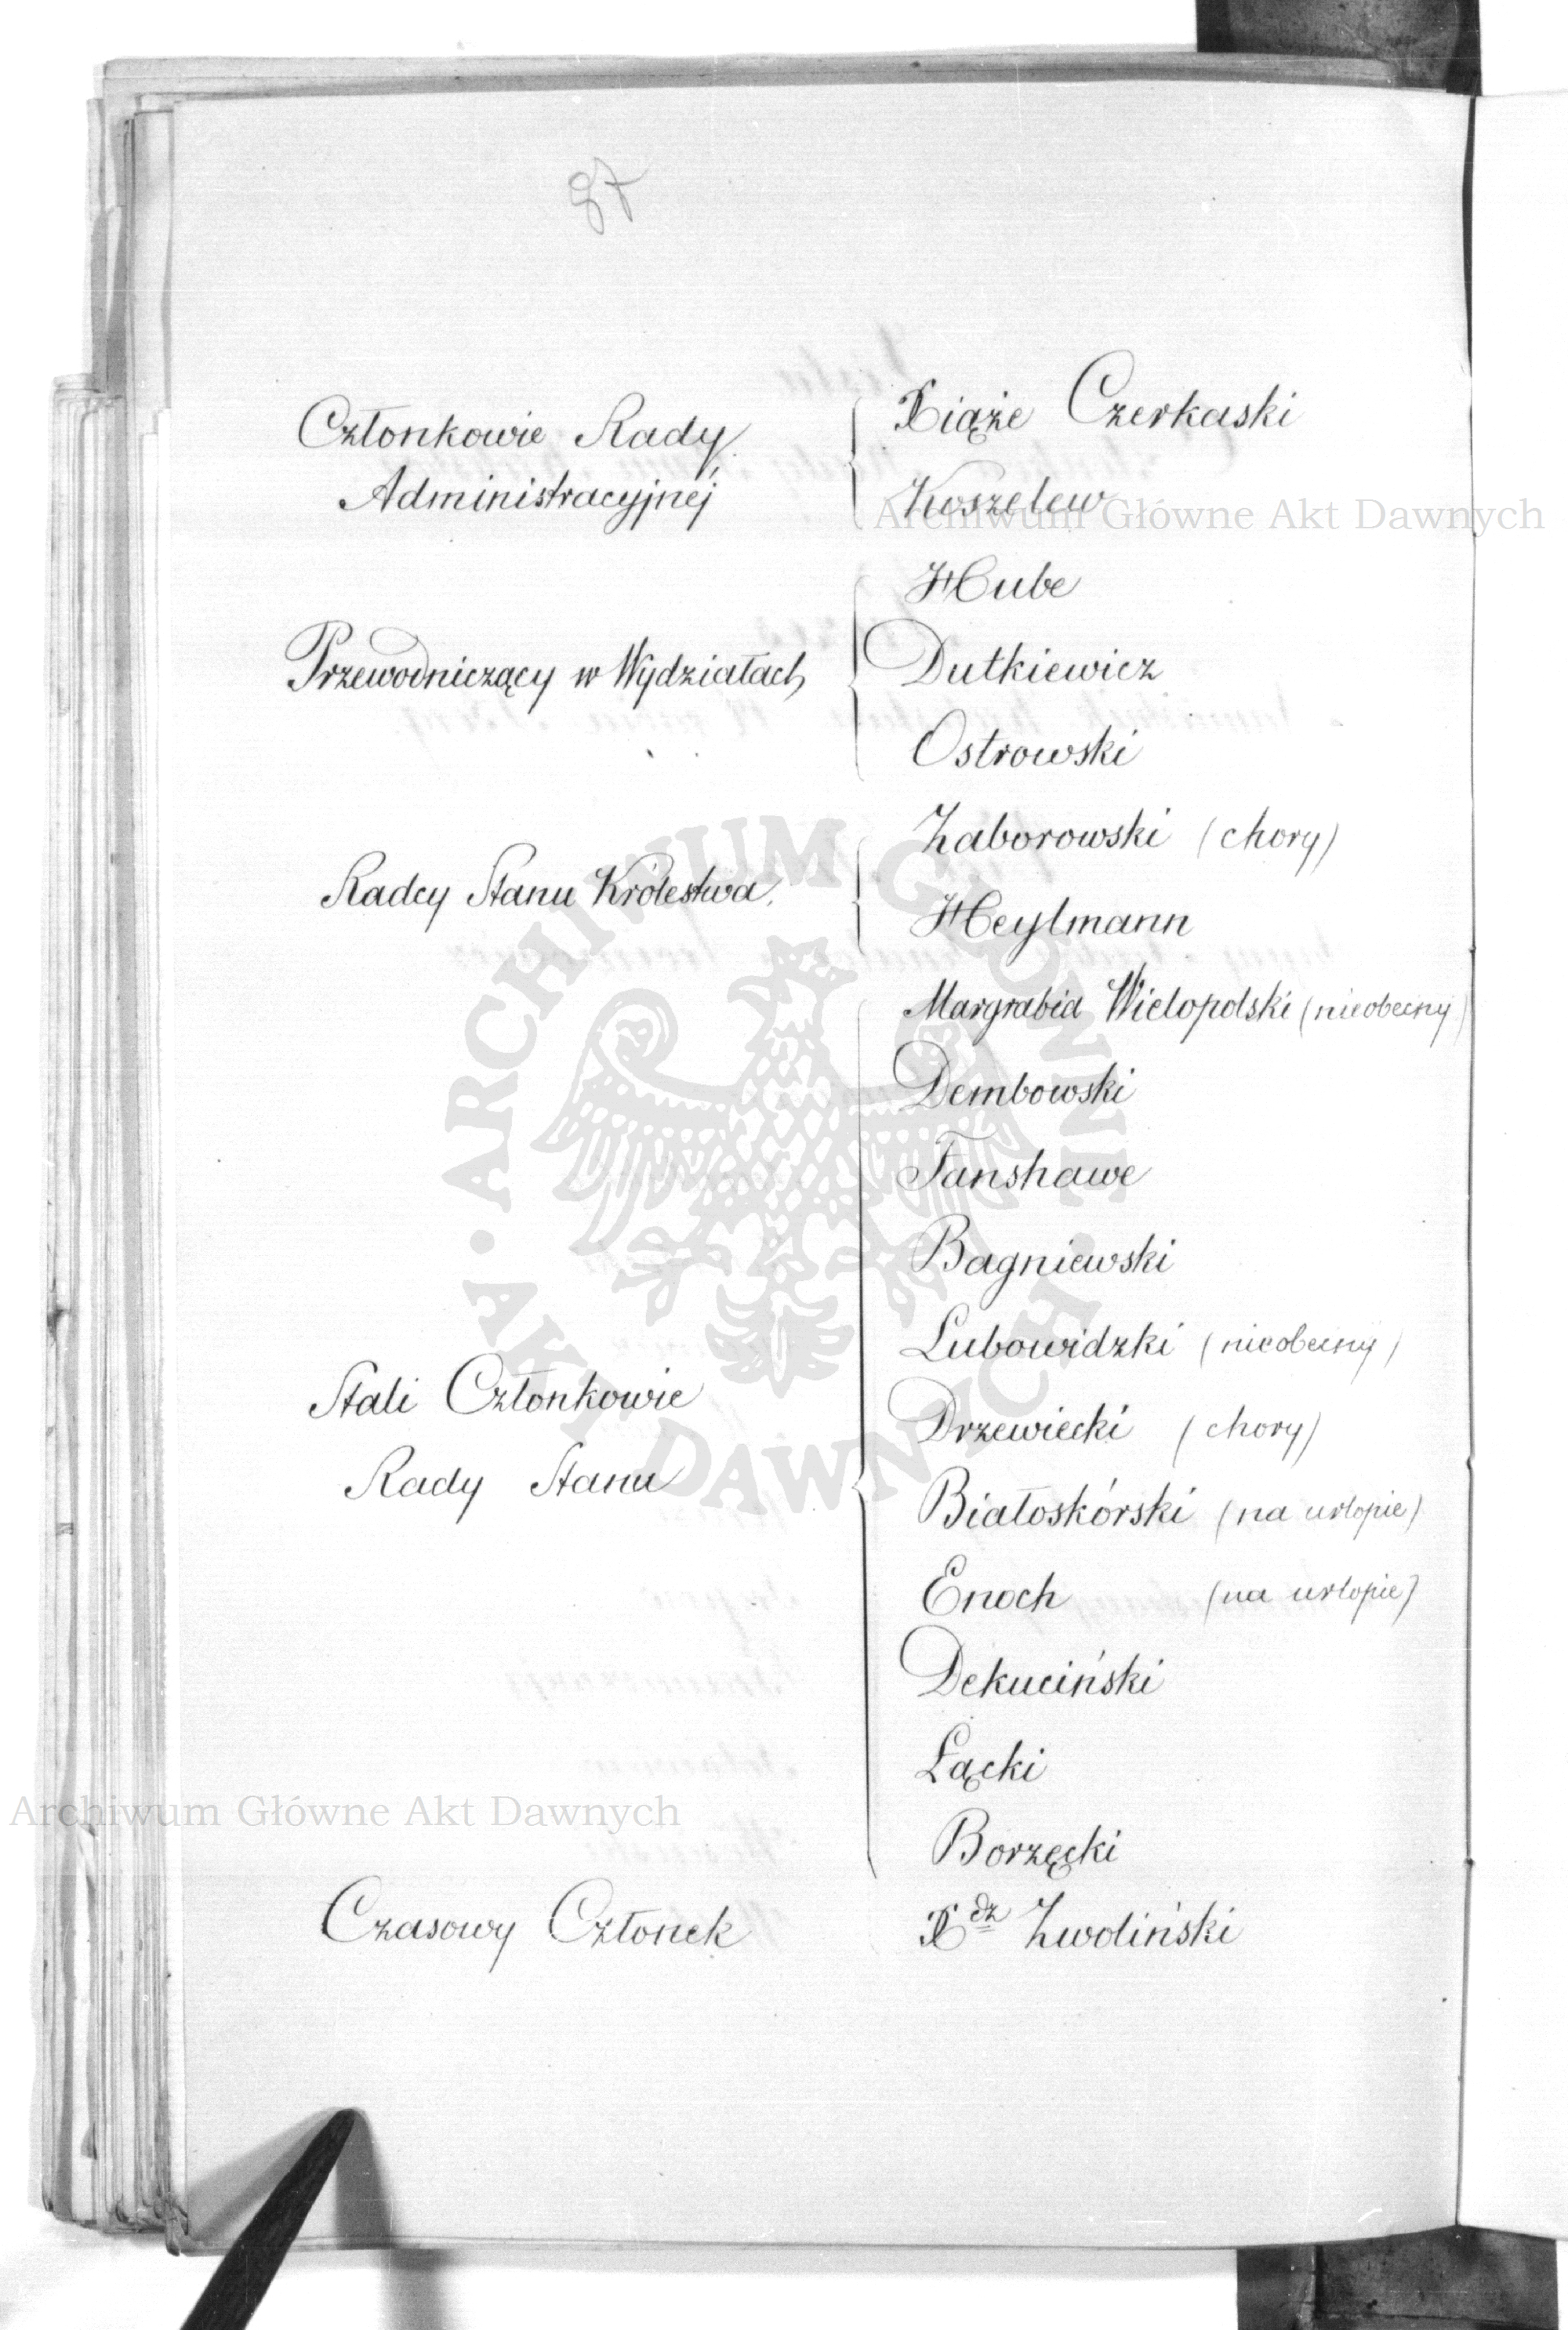 87
Członkowie Rady
Administracyjnéj
Xiąże Czerkaski
Koszelew
Przewodniczący w Wydziałach
Hube
Dutkiewicz
Ostrowski
Radcy Stanu Królestwa.
Zaborowski (chory)
Heylmann
Stali Członkowie
Rady Stanu
Margrabia Wielopolski (nieobecny)
Dembowski
Fanshawe
Bagniewski
Lubowidzki (nieobecny)
Drzewiecki (chory)
Białoskórski (na urlopie)
Enoch (na urlopie)
Dekuciński
Łącki
Borzęcki
Czasowy Członek
Xdz Zwoliński
Archiwum Główne Akt Dawnych
Archiwum Główne Akt Dawnych
· ARCHIWUM GŁÓWNE · AKT DAWNYCH